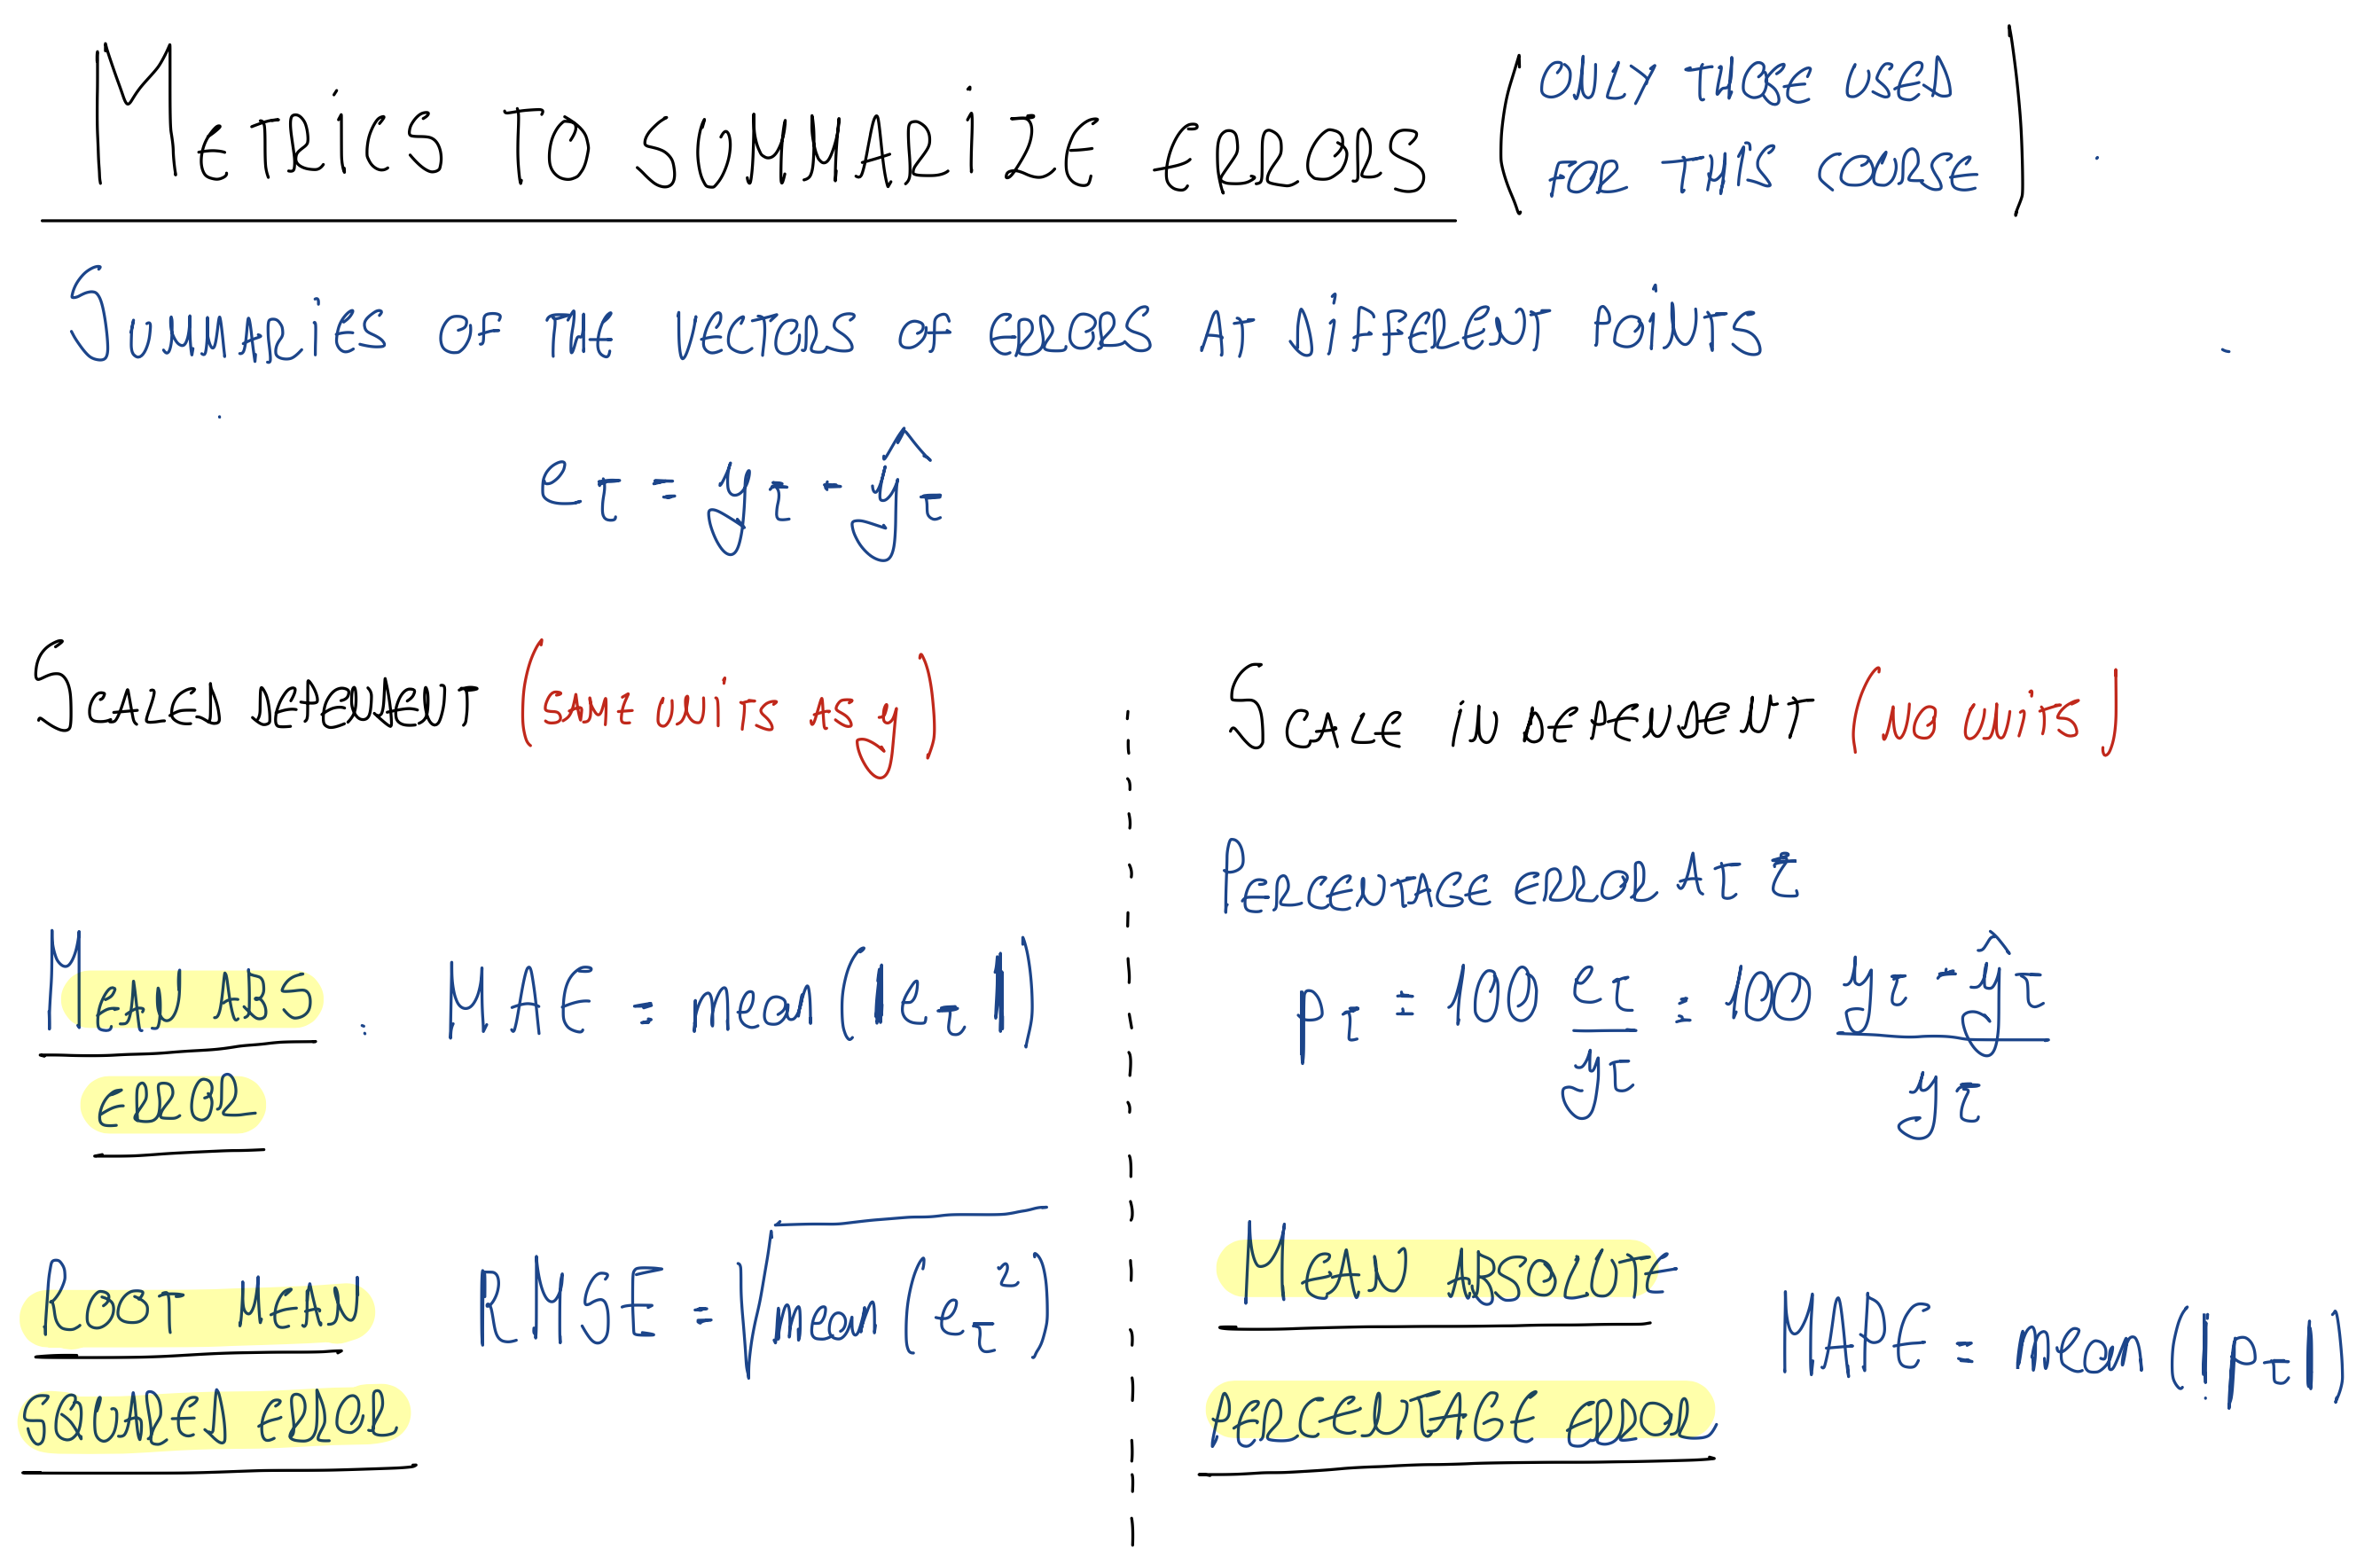 METRICS TO SUMMARIZE ERRORS (ONLY THOSE USED
FOR THIS COURSE)
SUMMARIES OF THE VECTORS OF ERRORS AT DIFFERENT POINTS
e_t = y_t - ŷ_t
SCALED DEPENDENT (SAME UNITS AS y)
MEAN ABS
ERROR
: MAE = mean(|e_t|)
ROOT MEAN
SQUARED ERROR
RMSE = √mean(e_t²)
SCALE INDEPENDENT (NO UNITS)
PERCENTAGE ERROR AT t
p_t = 100 e_t/y_t = 100 (y_t - ŷ_t)/y_t
MEAN ABSOLUTE
PERCENTAGE ERROR
MAPE = mean(|p_t|)